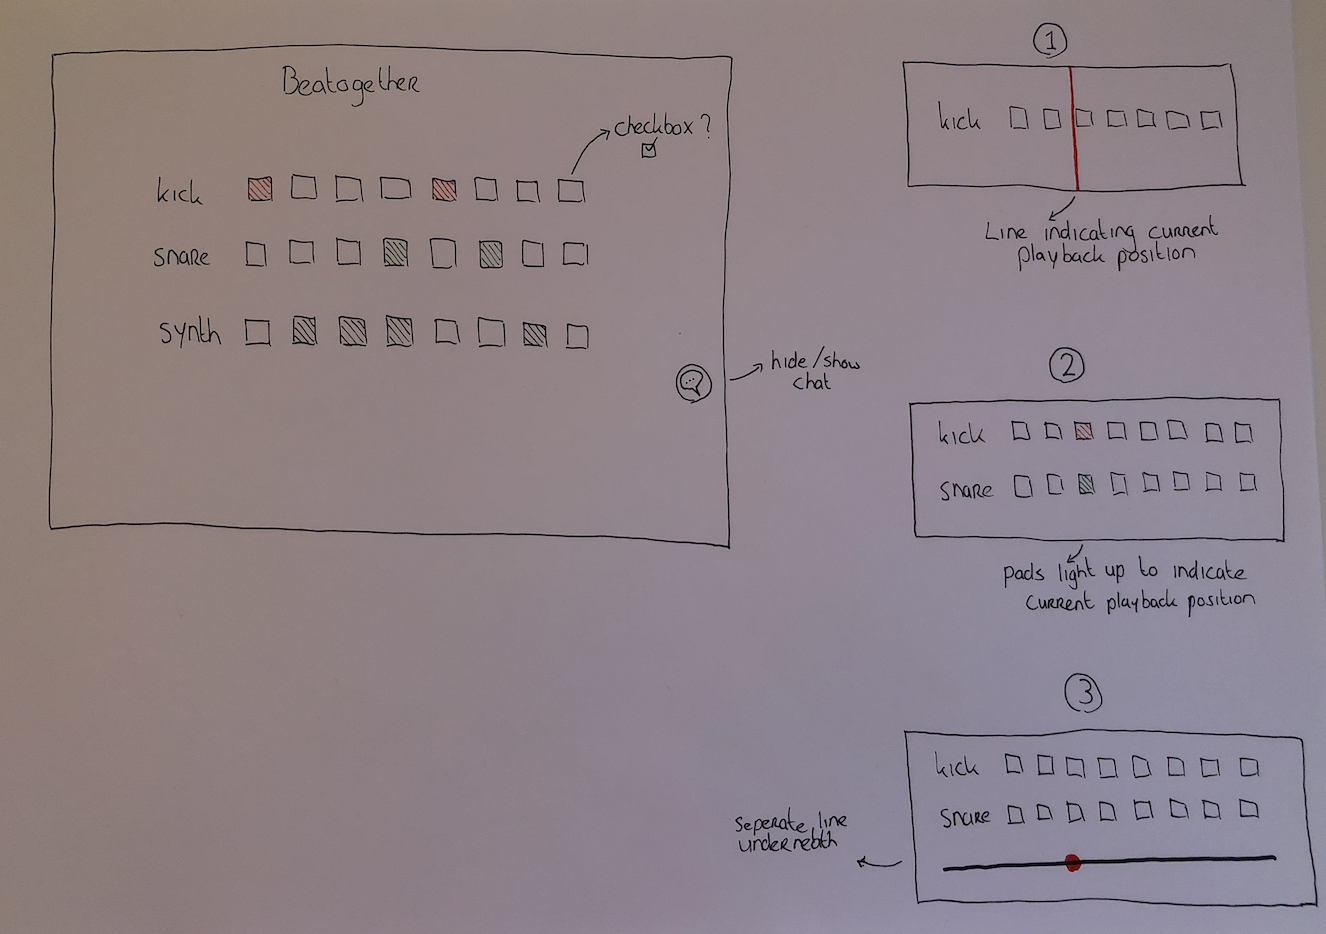 Beatogether
checkbox ?
kick
snare
synth
hide/show
chat
1
kick
Line indicating current
playback position
2
kick
snare
pads light up to indicate
current playback position
3
kick
snare
seperate line
underneath